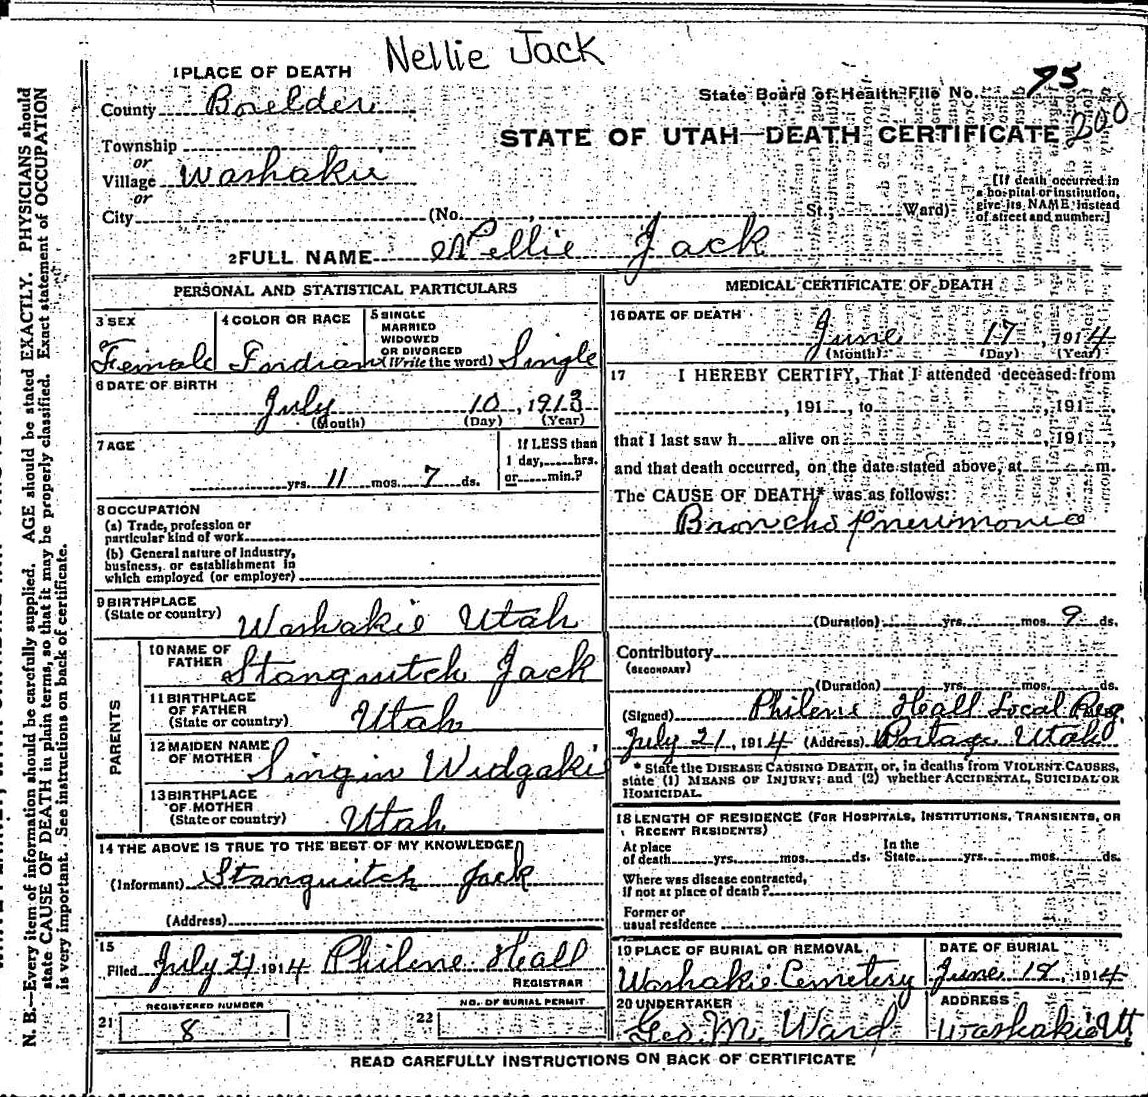 Nellie Jack
1 PLACE OF DEATH
County Boxelder
State Board of Health File No. 75
200
STATE OF UTAH—DEATH CERTIFICATE
Township
or
Village Washakie
or
City (No. , St., Ward)
[If death occurred in
a hospital or institution,
give its NAME instead
of street and number.]
2 FULL NAME Nellie Jack
PERSONAL AND STATISTICAL PARTICULARS
3 SEX Female
4 COLOR OR RACE Indian
5 SINGLE
MARRIED
WIDOWED
OR DIVORCED
(Write the word) Single
6 DATE OF BIRTH
July 10, 1913
(Month) (Day) (Year)
7 AGE
yrs. 11 mos. 7 ds.
If LESS than
1 day, hrs.
or min.?
8 OCCUPATION
(a) Trade, profession or
particular kind of work
(b) General nature of industry,
business, or establishment in
which employed (or employer)
9 BIRTHPLACE
(State or country) Washakie Utah
PARENTS
10 NAME OF
FATHER Stanquitch Jack
11 BIRTHPLACE
OF FATHER
(State or country) Utah
12 MAIDEN NAME
OF MOTHER Singin Widgaki
13 BIRTHPLACE
OF MOTHER
(State or country) Utah
14 THE ABOVE IS TRUE TO THE BEST OF MY KNOWLEDGE
(Informant) Stanquitch Jack
(Address)
15
Filed July 21 1914 Philene Heall
REGISTRAR
REGISTERED NUMBER
21 8
NO. OF BURIAL PERMIT
22
MEDICAL CERTIFICATE OF DEATH
16 DATE OF DEATH
June 17, 1914
(Month) (Day) (Year)
17 I HEREBY CERTIFY, That I attended deceased from
, 191 , to , 191 ,
that I last saw h alive on , 191 ,
and that death occurred, on the date stated above, at m.
The CAUSE OF DEATH* was as follows:
Broncho pneumonia
(Duration) yrs. mos. 9 ds.
Contributory
(SECONDARY)
(Duration) yrs. mos. ds.
(Signed) Philene Heall Local Reg.
July 21, 1914 (Address) Portage Utah
* State the DISEASE CAUSING DEATH, or, in deaths from VIOLENT CAUSES,
state (1) MEANS OF INJURY; and (2) whether ACCIDENTAL, SUICIDAL OR
HOMICIDAL.
18 LENGTH OF RESIDENCE (FOR HOSPITALS, INSTITUTIONS, TRANSIENTS, OR
RECENT RESIDENTS)
At place
of death yrs. mos. ds.
In the
State yrs. mos. ds.
Where was disease contracted,
if not at place of death?
Former or
usual residence
19 PLACE OF BURIAL OR REMOVAL
Washakie Cemetery
DATE OF BURIAL
June 18, 1914
20 UNDERTAKER
Geo. M. Ward
ADDRESS
Washakie Ut
READ CAREFULLY INSTRUCTIONS ON BACK OF CERTIFICATE
N. B.—Every item of information should be carefully supplied. AGE should be stated EXACTLY. PHYSICIANS should
state CAUSE OF DEATH in plain terms, so that it may be properly classified. Exact statement of OCCUPATION
is very important. See instructions on back of certificate.